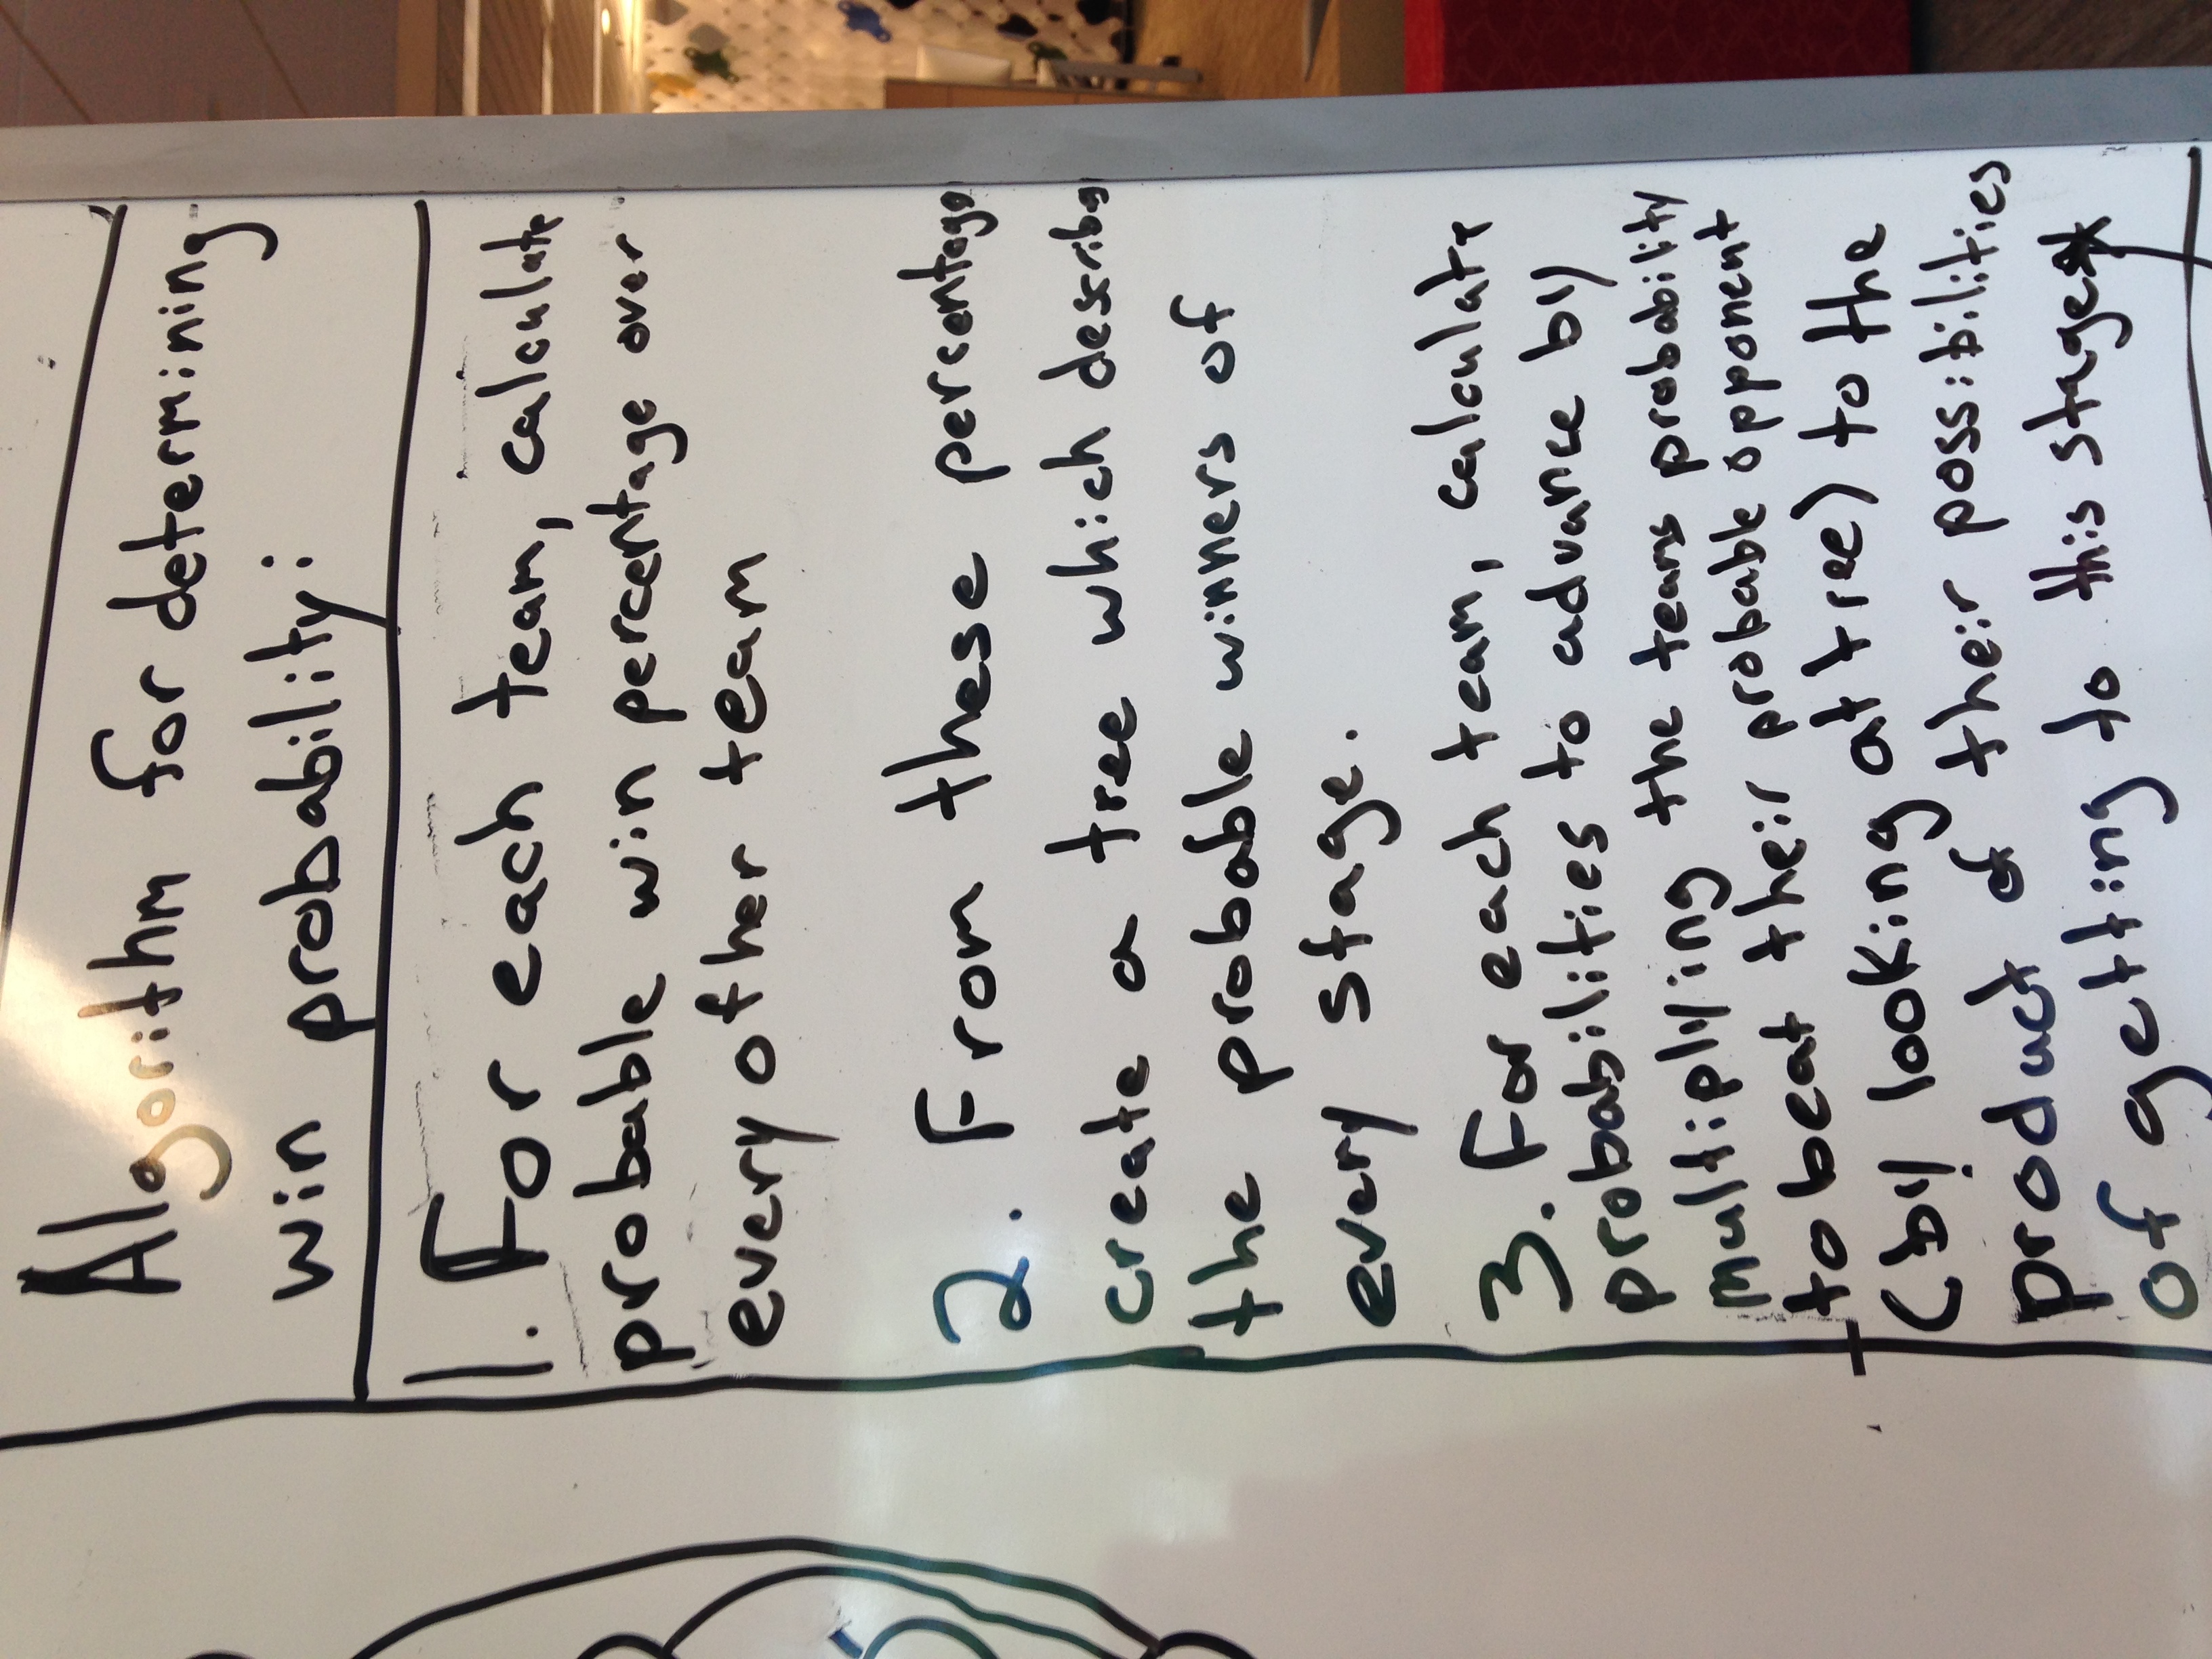 Algorithm for determining
win probability:
1. For each team, calculate
probable win percentage over
every other team
2. From these percentages
create a tree which describes
the probable winners of
every stage.
3. For each team, calculate
probabilities to advance by
multiplying the teams probability
to beat their probable opponent
(by looking at tree) to the
product of their possibilities
of getting to this stage*